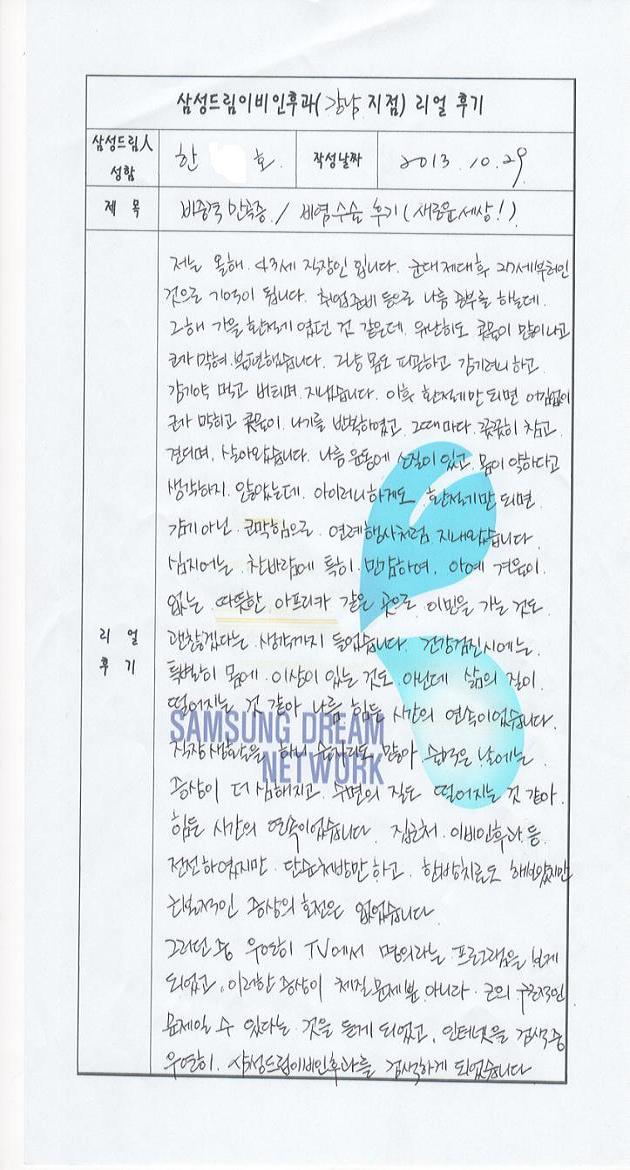 삼성드림이비인후과(강남 지점) 리얼 후기
삼성드림人 성함
한 호.
작성날짜
2013. 10. 29.
제 목
비중격 만곡증 / 비염수술 후기 (새로운세상!)
리 얼 후 기
저는 올해. 43세 직장인 입니다. 군대제대후 27세부터인
것으로 기억이 됩니다. 취업준비 등으로 나름 공부를 하는데.
그해 가을 환절기 였던 것 같은데. 유난히도 콧물이 많이나고
코가 막혀. 불편했습니다. 그냥 몸도 피곤하고 감기려니 하고.
감기약 먹고 버티며. 지냈습니다. 이후 환절기만 되면 어김없이
코가 막히고 콧물이. 나기를 반복하였고. 그때마다. 꿋꿋히 참고.
견디며. 살아왔습니다. 나름 운동에 소질이 있고. 몸이 약하다고
생각하지. 않았는데. 아이러니하게도. 환절기만 되면.
감기 아닌. 코막힘으로. 연례행사처럼 지내왔습니다.
심지어는. 찬바람에 특히. 민감하여. 아예 겨울이.
없는 따뜻한 아프리카 같은 곳으로 이민을 가는 것도.
괜찮겠다는 생각까지 들었습니다. 건강검진시에는.
특별히 몸에. 이상이 있는 것도 아닌데 삶의 질이.
떨어지는 것 같아 나름 힘든 시간의 연속이었습니다.
SAMSUNG DREAM
NETWORK
직장생활을 하니 술자리도 많아 술먹은 날에는.
증상이 더 심해지고. 수면의 질도 떨어지는 것 같아.
힘든 시간의 연속이었습니다. 집근처. 이비인후과 등.
전전하였지만. 단순처방만 하고. 한방치료도 해보았지만
근본적인 증상의 호전은 없었습니다.
그러던 중 우연히 TV에서 명의라는 프로그램을 보게
되었고. 이러한 증상이 체질문제뿐 아니라. 코의 구조적인
문제일 수 있다는 것을 듣게 되었고. 인터넷을 검색중
우연히. 삼성드림이비인후과를 검색하게 되었습니다